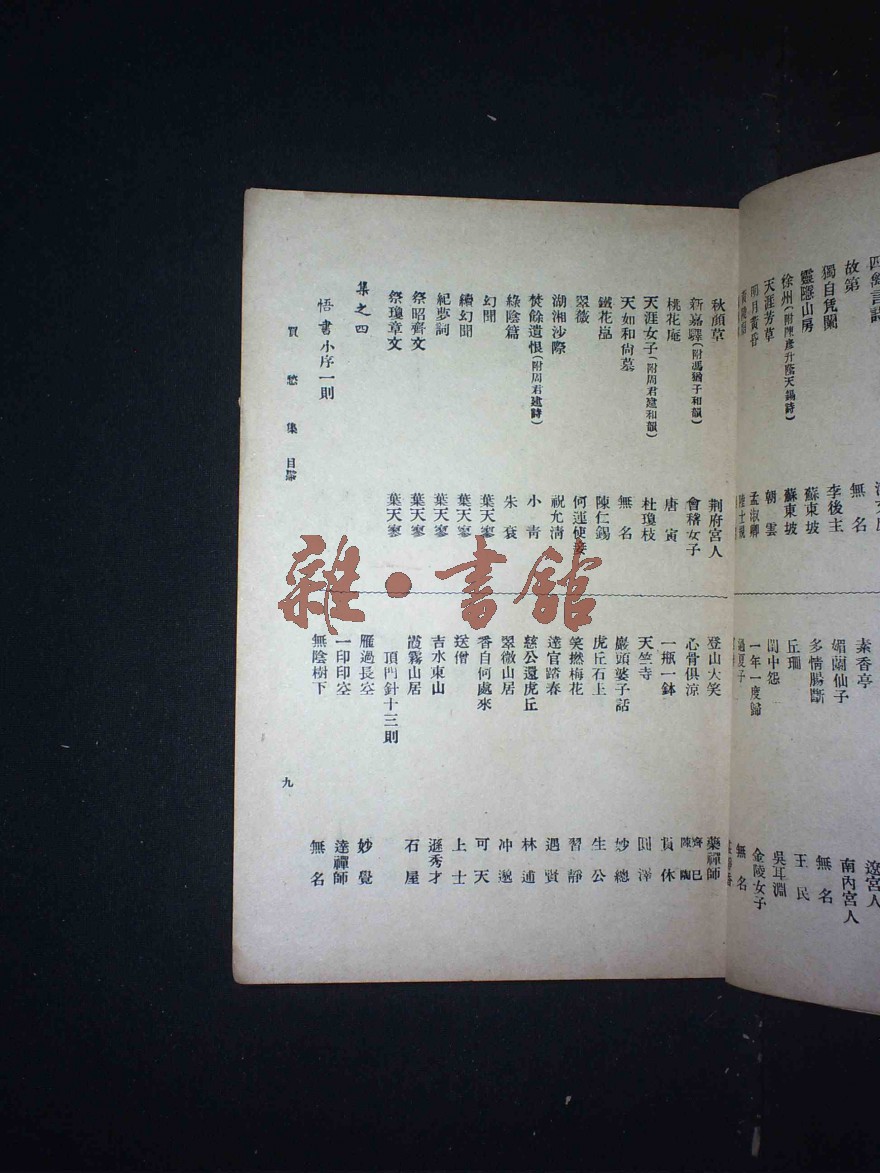 故第
無名
獨自凭闌
李後主
靈隱山房
蘇東坡
蘇東坡
天涯芳草
朝雲
明月黃昏
孟淑卿
素香亭
遼宮人
媚蘭仙子
南內宮人
多情腸斷
無名
丘珊
王民
閨中怨
吳耳淵
一年一度歸
金陵女子
過夏子
無名
秋顏草
荆府宮人
新嘉驛(附馮猶子和韻)
會稽女子
桃花庵
唐寅
天涯女子(附周君建和韻)
杜瓊枝
天如和尙墓
無名
鐵花嵓
陳仁錫
翠薇
何運使妾
湖湘沙際
祝允清
焚餘遺恨(附周君建詩)
小青
綠陰篇
朱衮
幻聞
葉天寥
續幻聞
葉天寥
紀夢詞
葉天寥
祭昭齊文
葉天寥
祭瓊章文
葉天寥
集之四
悟書小序一則
登山大笑
藥禪師
心骨俱涼
齊巳
陳陶
一瓶一鉢
貫休
天竺寺
圓澤
巖頭婆子話
妙總
虎丘石上
生公
笑撚梅花
習靜
達官踏春
遇賢
慈公還虎丘
林逋
翠微山居
冲邈
香自何處來
可天
送僧
上士
吉水東山
遜秀才
霞霧山居
石屋
頂門針十三則
雁過長空
妙覺
一印印空
達禪師
無陰樹下
無名
買愁集目錄
九
雜·書館